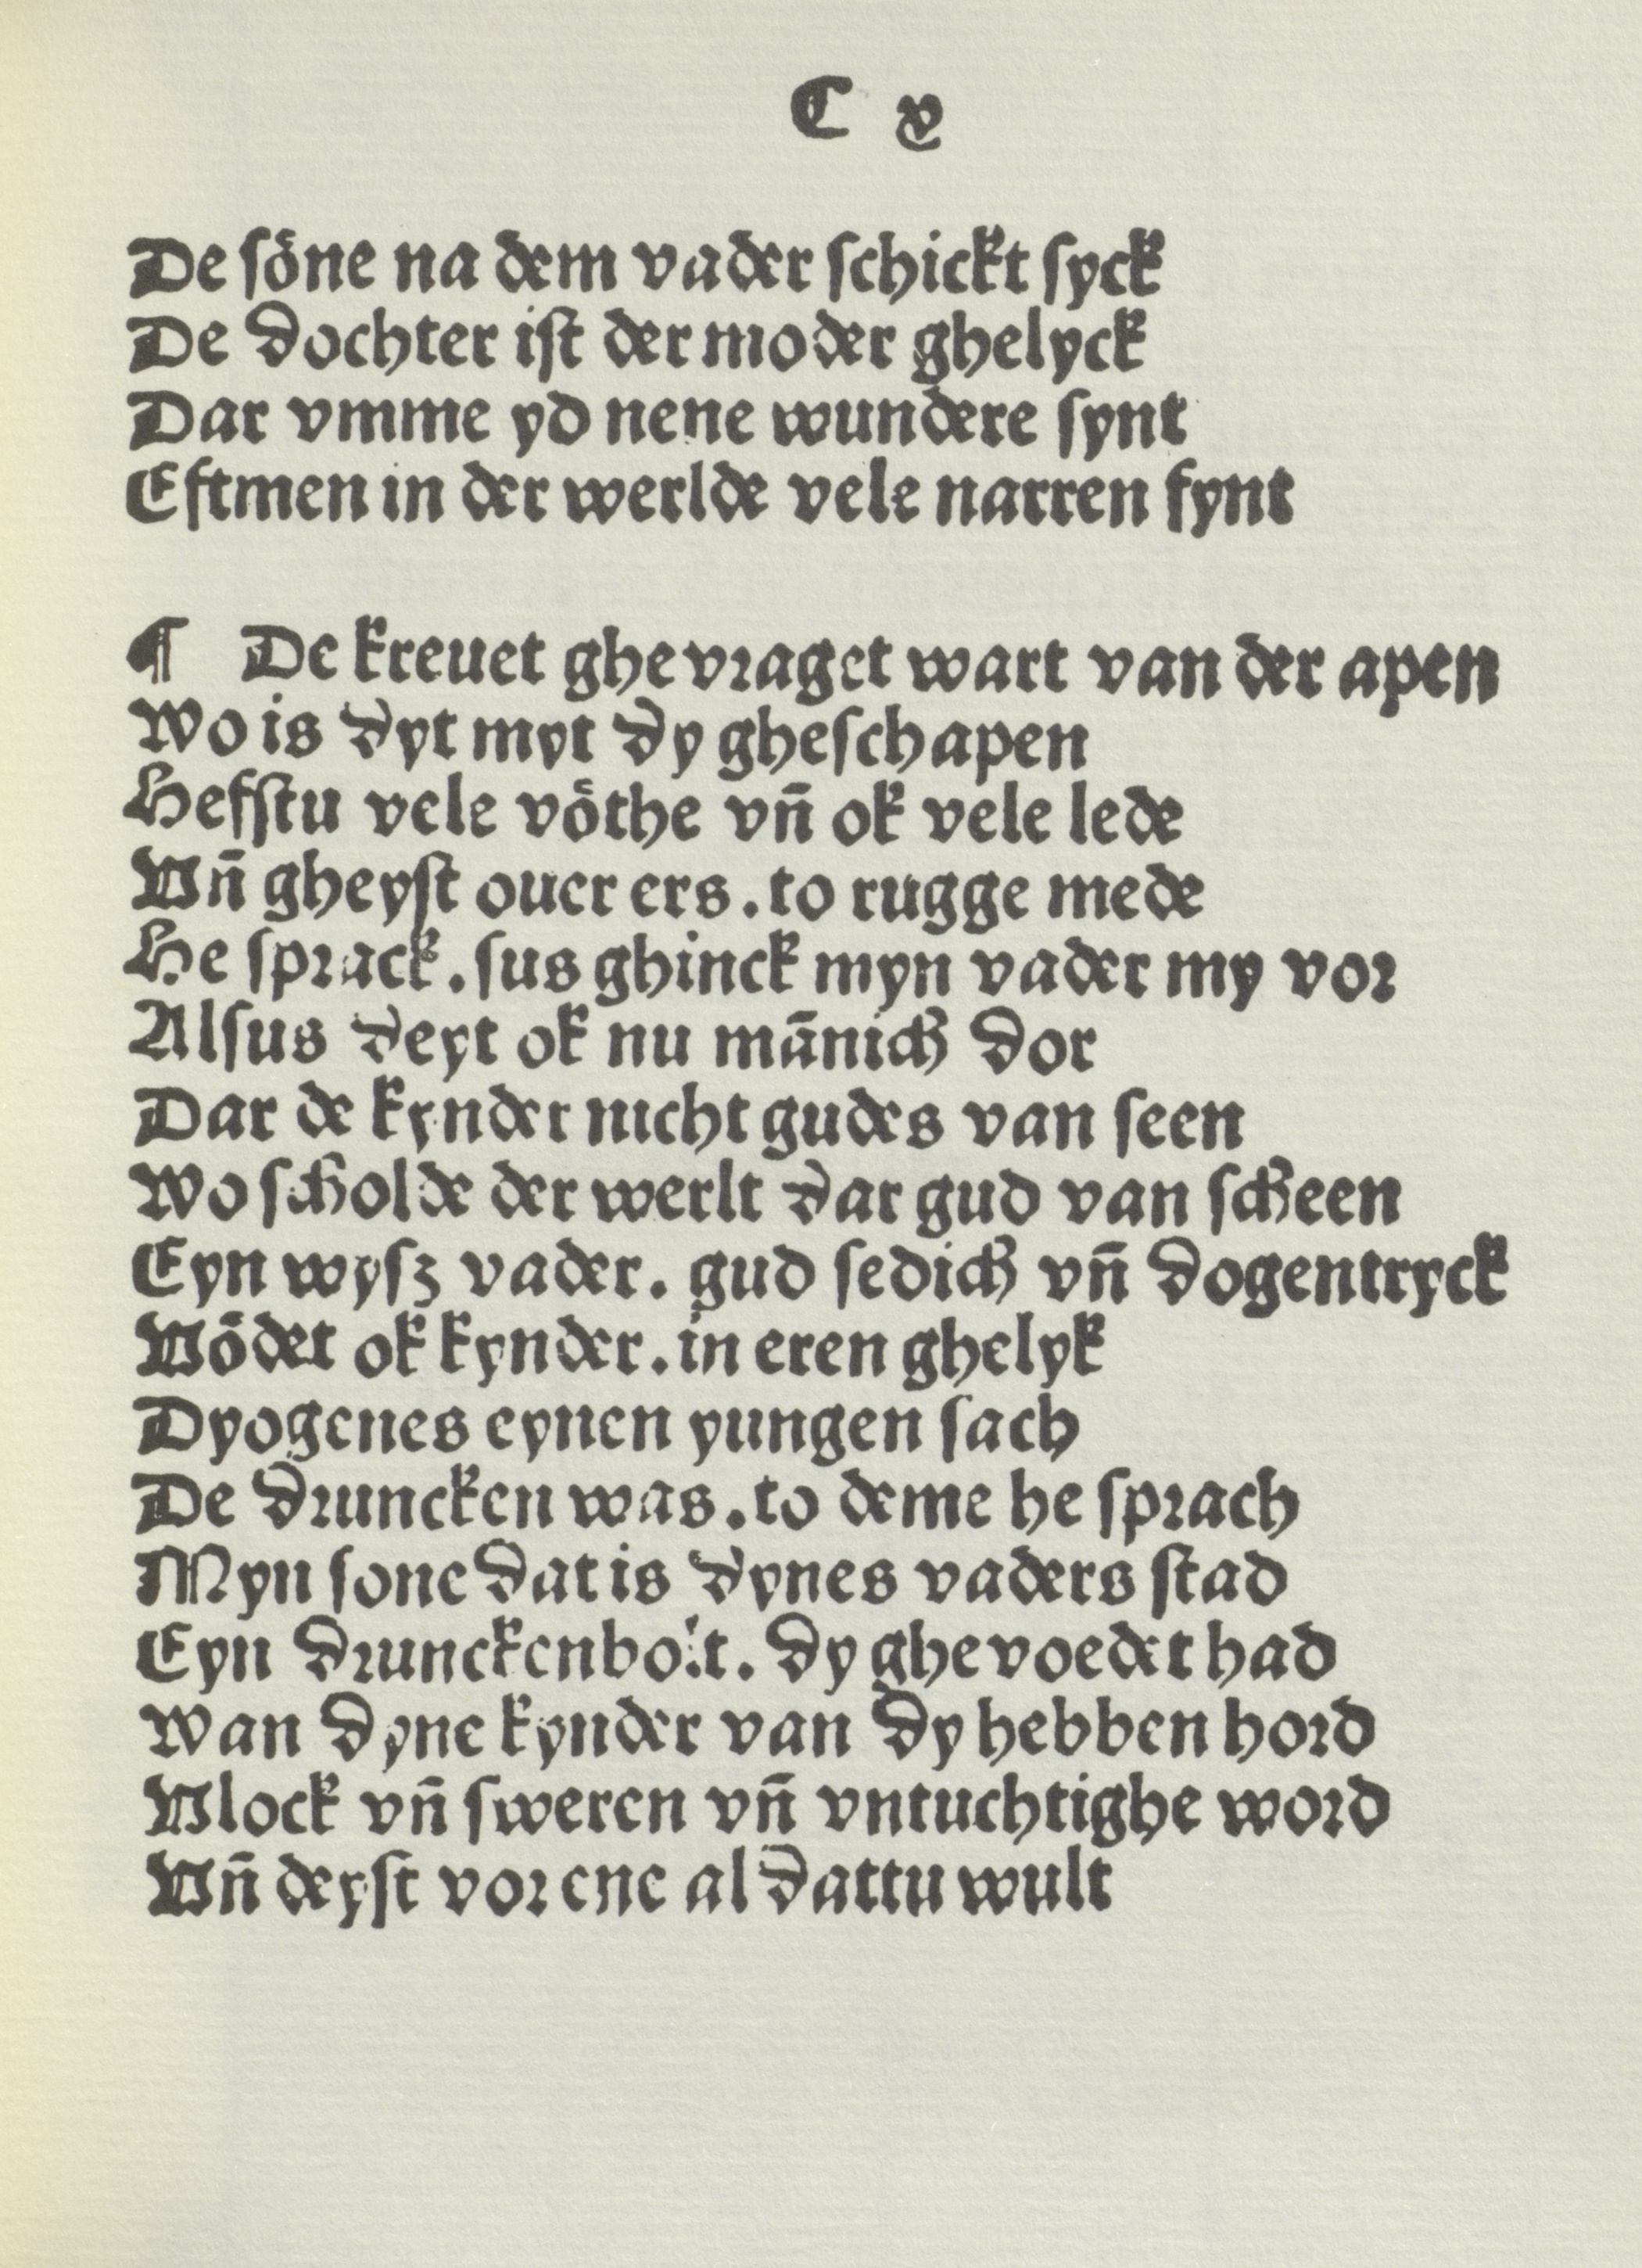 C x
De söne na dem vader schickt syck
De dochter ist der moder ghelyck
Dar vmme yd nene wundere synt
Eftmen in der werlde vele narren fynt
¶ De kreuet ghevraget wart van der apen
Wo is dyt myt dy gheschapen
Hefstu vele vöthe vn̄ ok vele lede
Vn̄ gheyst ouer ers . to rugge mede
He sprack . sus ghinck myn vader my vor
Alsus deyt ok nu mānich dor
Dar de kynder nicht gudes van seen
Wo scholde der werlt dar gud van scheen
Eyn wysz vader . gud sedich vn̄ dogentryck
Vödet ok kynder . in eren ghelyk
Dyogenes eynen yungen sach
De druncken was . to deme he sprach
Myn sone dat is dynes vaders stad
Eyn drunckenbolt . dy ghevoedet had
Wan dyne kynder van dy hebben hord
Vlock vn̄ sweren vn̄ vntuchtighe word
Vn̄ deyst vor ene al dattu wult